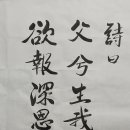 詩曰
父兮生我
欲報深恩